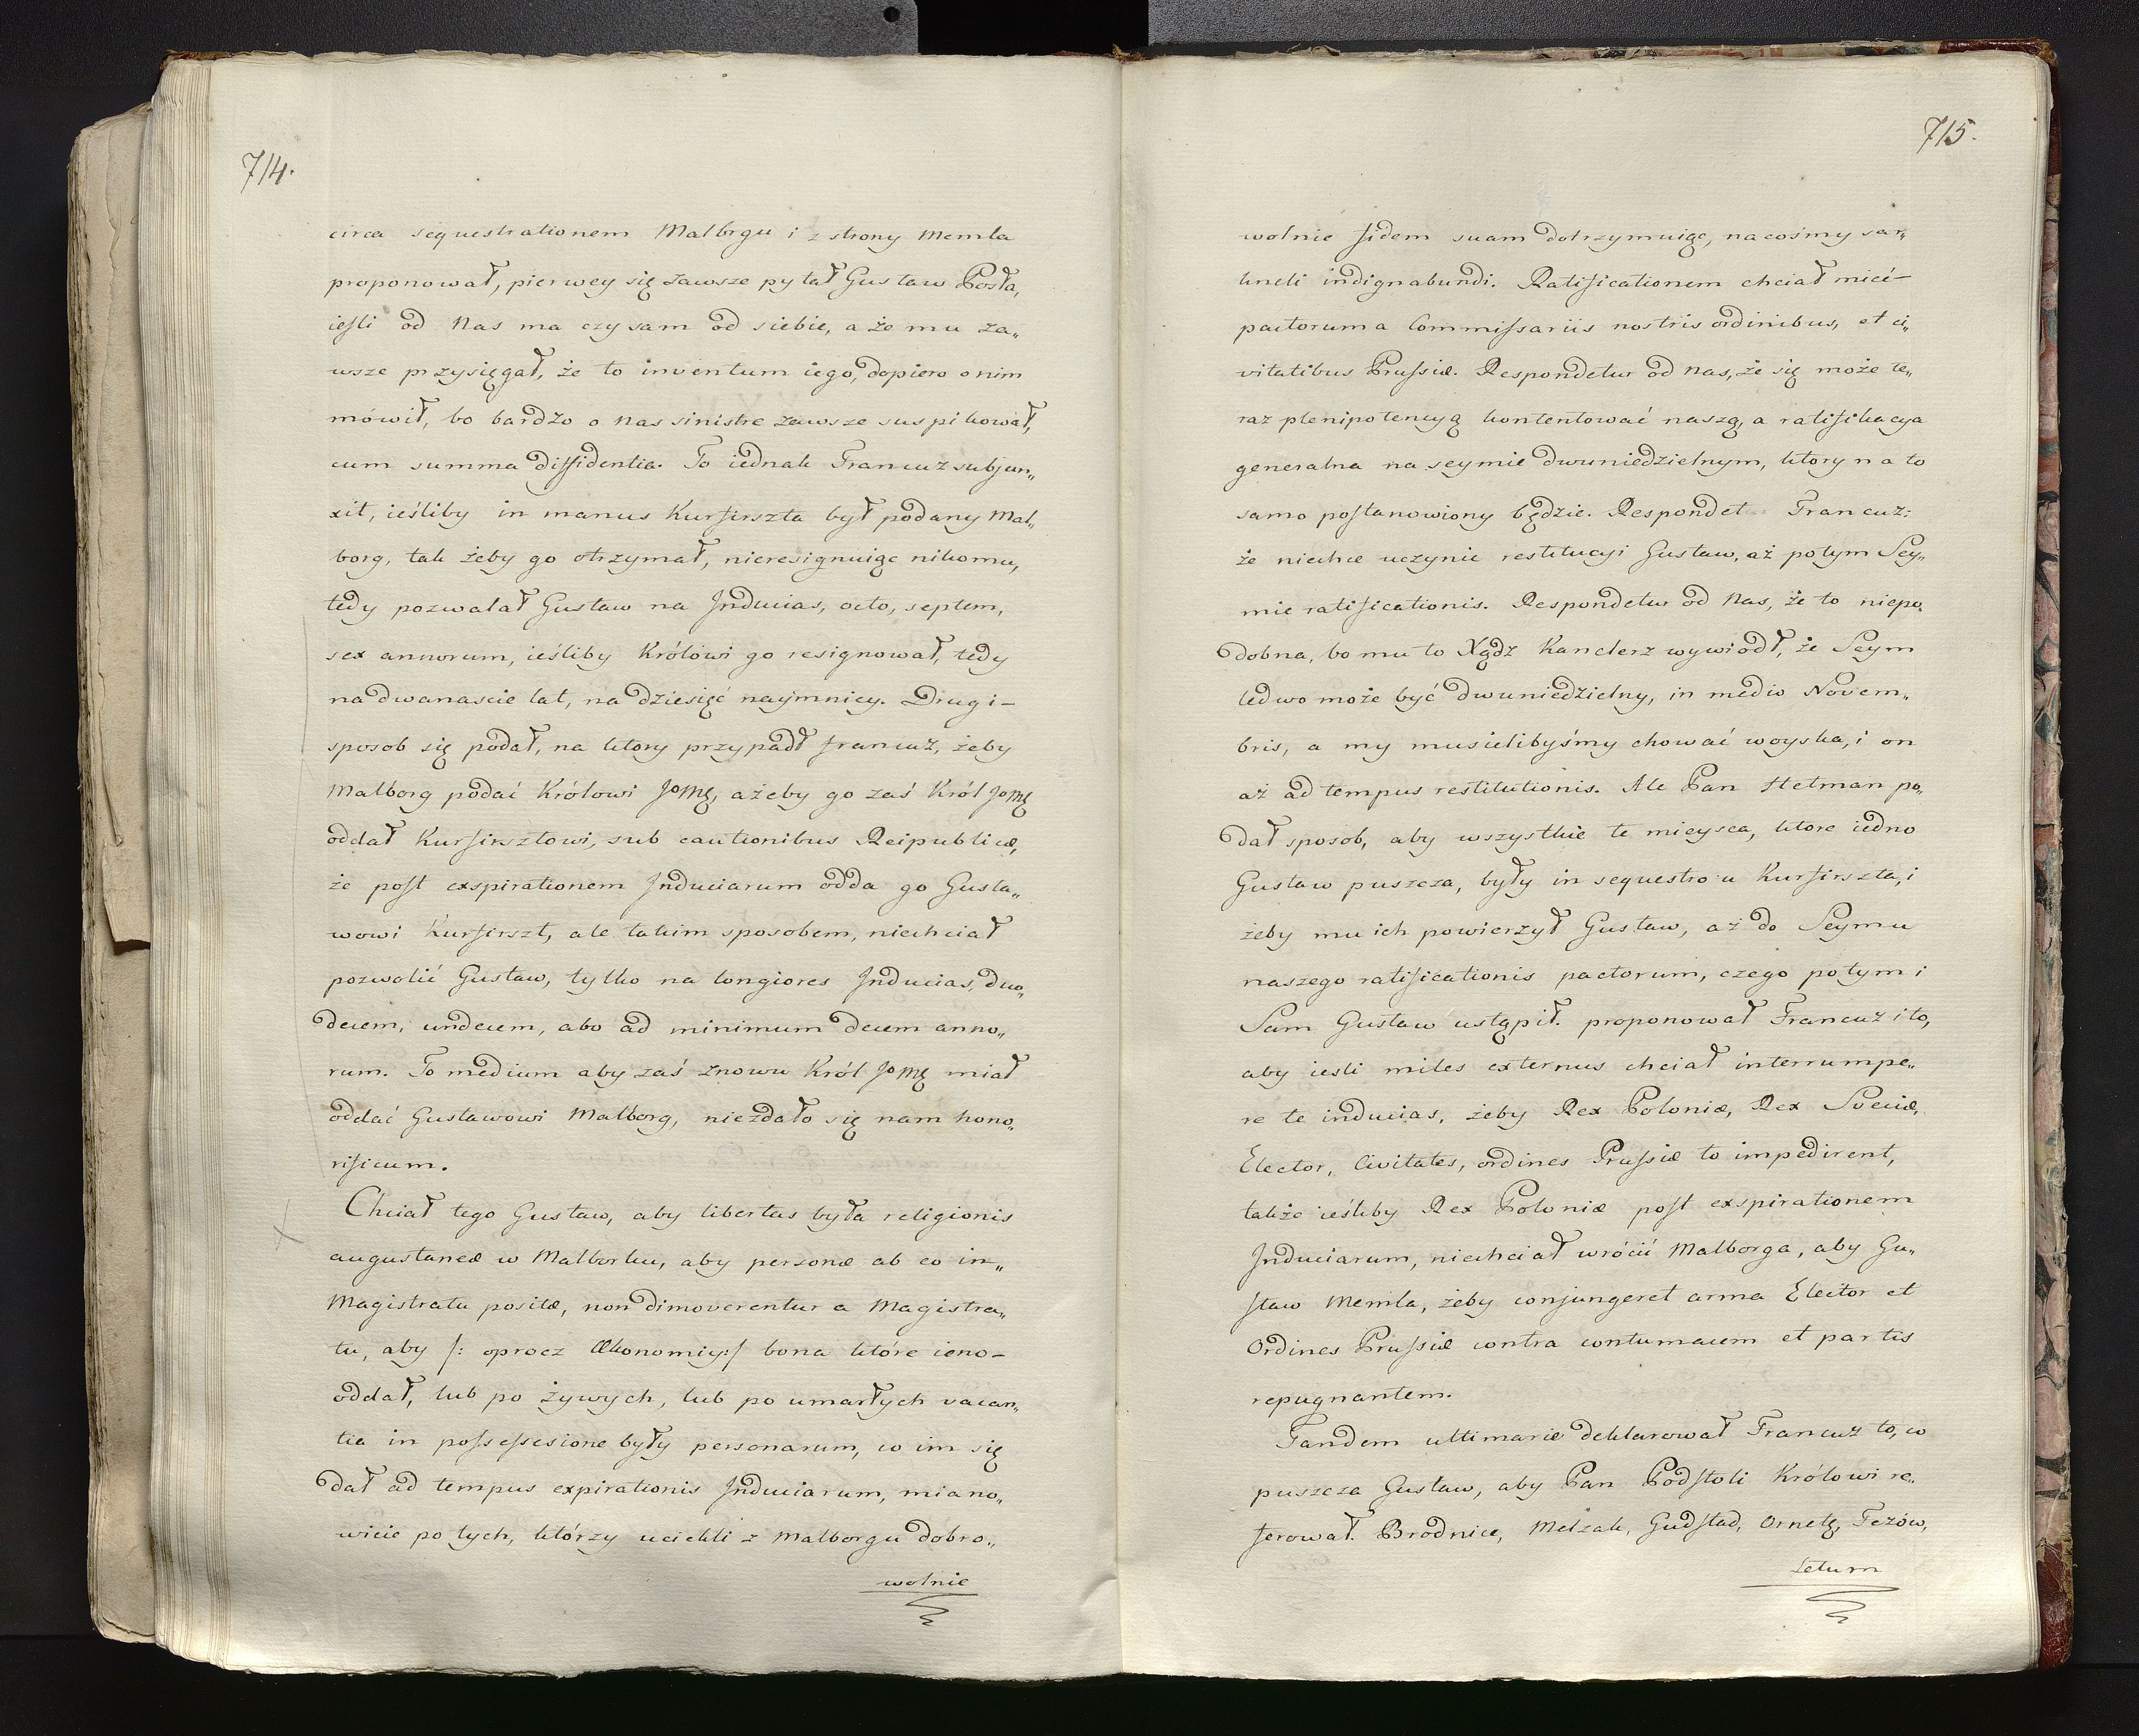 714.
circa sequestrationem Malbrgu i z strony Memla
proponował, pierwey się zawsze pytał Gustaw Posła,
ieſli od Nas ma czy sam od siebie, a że mu za„
wsze przysięgał, że to inventum iego, dopiero o nim
mówił, bo bardzo o nas sinistre zawsze suspikował,
cum summa diffidentia. To iednak Francuz subjun„
xit, ieśliby in manus Kurfirszta był podany Mal„
borg, tak żeby go otrzymał, nieresignuiąc nikomu,
tedy pozwalał Gustaw na Inducias, octo, septem,
sex annorum, ieśliby Królowi go resignował, tedy
na dwanascie lat, na dziesięć naymniey. Drugi-
sposob się podał, na ktory przypadł francuz, żeby
Malborg podać Królowi JoMę, ażeby go zaś Król JoMę
oddał Kurfirsztowi, sub cautionibus Reipublicæ,
że poſt exspirationem Induciarum odda go Gusta„
wowi Kurfirszt, ale takim sposobem, niechciał
pozwolić Gustaw, tylko na longiores Inducias, duo„
decem, undecem, abo ad minimum decem anno„
rum. To medium aby zaś znowu Król JoMę miał
oddać Gustawowi Malborg, niezdało się nam hono„
rificum.
Chciał tego Gustaw, aby libertas była religionis
augustaneæ w Malborku, aby personæ ab eo in„
Magistratu positæ, non dimoverentur a Magistra„
tu, aby /: oprocz Œkonomiy:/ bona które ieno-
oddał, lub po żywych, lub po umarłych vacan„
tia in poſseſsesione były personarum, co im się
dał ad tempus expirationis Induciarum, miano„
wicie po tych, którzy uciekli z Malborgu dobro„
wolnie
715.
wolnie fidem suam dotrzymuiąc, na cośmy sar„
kneli indignabundi. Ratificationem chciał mieć-
pactorum a Commiſsariis nostris ordinibus, et ci„
vitatibus Pruſsiæ. Respondetur od Nas, że się może te„
raz plenipotencyą kontentować naszą, a ratifikacya
generalna na seymie dwuniedzielnym, ktory na to
samo poſtanowiony będzie. Respondet Francuz:
że niechce uczynic restitucyi Gustaw, aż po tym Sey„
mie ratificationis. Respondetur od Nas, że to niepo„
dobna, bo mu to Xądz Kanclerz wywiodł, że Seym
ledwo może być dwuniedzielny, in medio Novem„
bris, a my musielibyśmy chować woyska, i on
aż ad tempus restitutionis. Ale Pan Hetman po„
dał sposob, aby wszystkie te mieysca, ktore iedno
Gustaw puszcza, były in sequestro u Kurfirszta, i
żeby mu ich powierzył Gustaw, aż do Seymu
naszego ratificationis pactorum, czego potym i
Sam Gustaw ustąpił. proponował Francuz i to,
aby iesli miles externus chciał interrumpe„
re te inducias, żeby Rex Poloniæ, Rex Sveciæ,
Elector, Civitates, ordines Pruſsiæ to impedirent,
także ieśliby Rex Poloniæ poſt exspirationem
Induciarum, niechciał wrócić Malborga, aby Gu„
ſtaw Memla, żeby conjungeret arma Elector et
Ordines Pruſsiæ contra contumacem et partis
repugnantem.
Tandem ultimarie deklarował Francuz to, co
puszcza Gustaw, aby Pan Podſtoli Królowi re„
ferował. Brodnice, Melzak, Gudſtad, Ornetę, Tczów,
Sztum